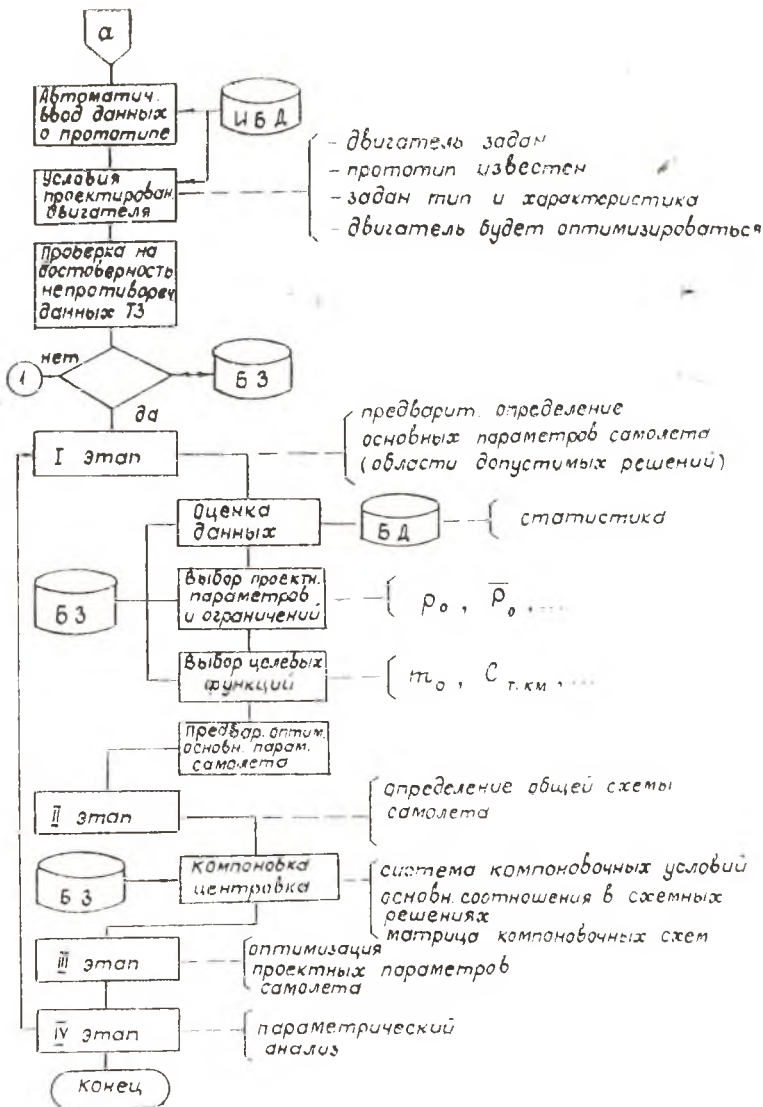 а
Автоматич.
ввод данных
о прототипе
ИБД
Условия
проектирован.
двигателя
- двигатель задан
- прототип известен
- задан тип и характеристика
- двигатель будет оптимизироваться
Проверка на
достоверность
непротивореч
данных ТЗ
нет
1
БЗ
да
I этап
предварит. определение
основных параметров самолета
(области допустимых решений)
Оценка
данных
БД
статистика
БЗ
Выбор проектн.
параметров
и ограничений
p₀, p̅₀, ...
Выбор целевых
функций
m₀, C т.км, ...
Предвар. оптим.
основн. парам.
самолета
II этап
определение общей схемы
самолета
БЗ
Компоновка
центровка
система компоновочных условий
основн. соотношения в схемных
решениях
матрица компоновочных схем
III этап
оптимизация
проектных параметров
самолета
IV этап
параметрический
анализ
Конец